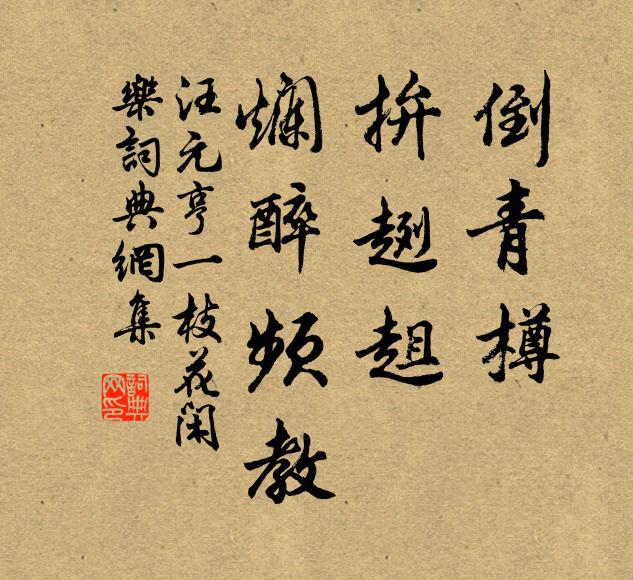 倒青樽
拚趔趄
爛醉頻教
汪元亨一枝花閑
樂詞典網集
詞典網印